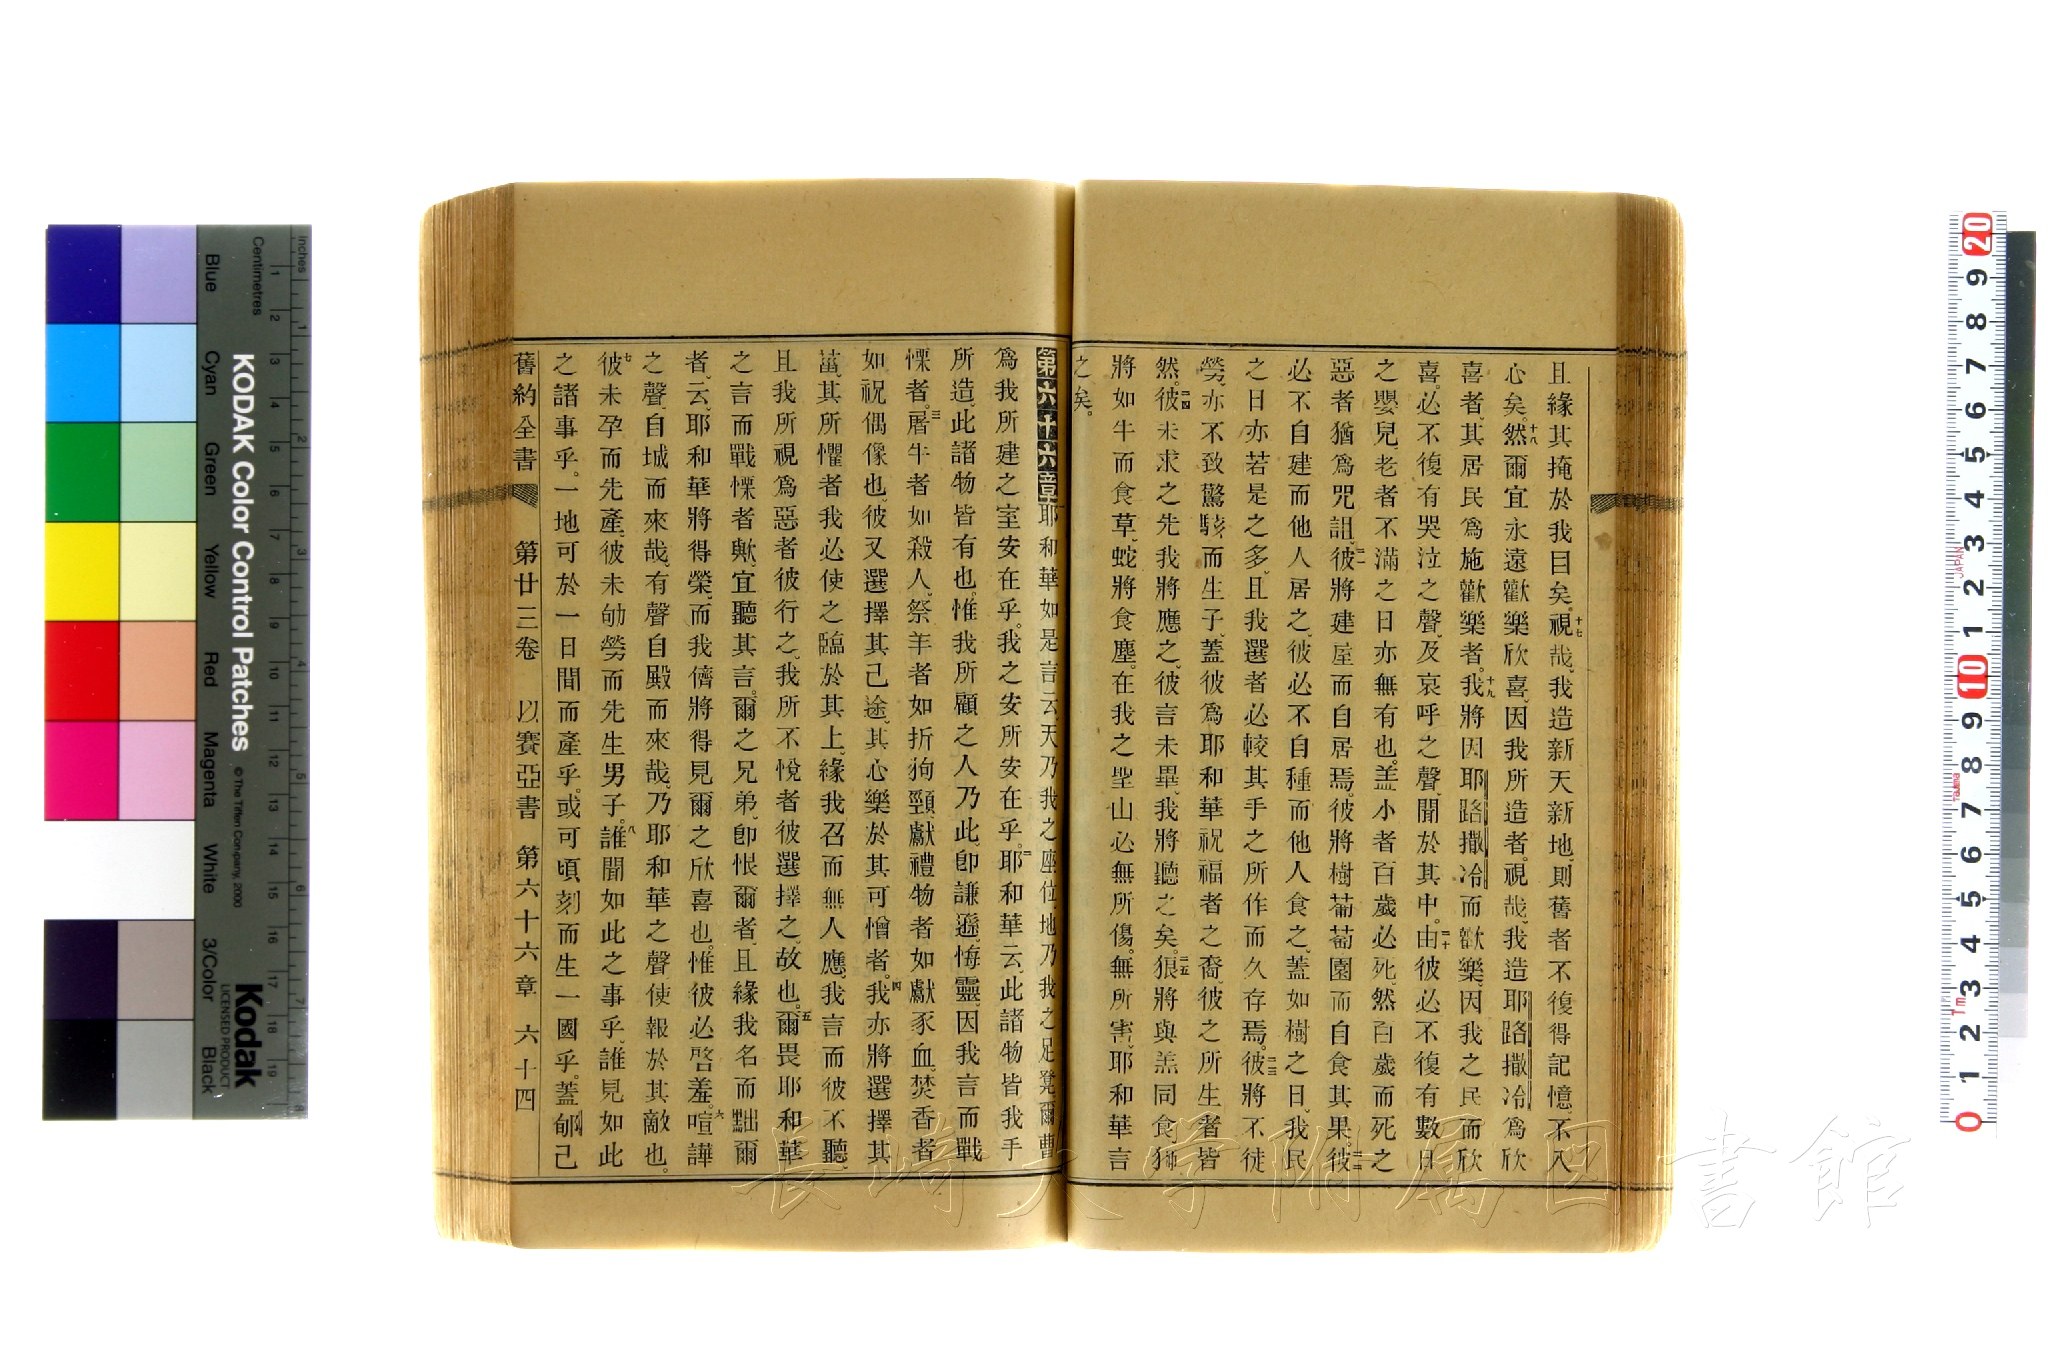 且緣其掩於我目矣。十七視哉、我造新天新地、則舊者不復得記憶、不入
心矣。十八然爾宜永遠歡樂欣喜、因我所造者。視哉、我造耶路撒冷爲欣
喜者、其居民爲施歡樂者。十九我將因耶路撒冷而歡樂、因我之民而欣
喜。必不復有哭泣之聲、及哀呼之聲、聞於其中。二十由彼必不復有數日
之嬰兒、老者不滿之日亦無有也。盖小者百歲必死、然百歲而死之
惡者猶爲咒詛。二一彼將建屋而自居焉。彼將樹葡萄園而自食其果。二二彼
必不自建而他人居之、彼必不自種而他人食之、蓋如樹之日、我民
之日亦若是之多、且我選者必較其手之所作而久存焉。二三彼將不徒
勞、亦不致驚駭、而生子、蓋彼爲耶和華祝福者之裔、彼之所生者皆
然。二四彼未求之先我將應之、彼言未畢、我將聽之矣。二五狼將與羔同食、獅
將如牛而食草、蛇將食塵。在我之聖山必無所傷、無所害、耶和華言
之矣。
第六十六章耶和華如是言云、天乃我之座位、地乃我之足凳、爾曹
爲我所建之室安在乎。我之安所安在乎。二耶和華云、此諸物皆我手
所造、此諸物皆有也。惟我所顧之人乃此、卽謙遜、悔靈、因我言而戰
慄者。三屠牛者如殺人、祭羊者如折狗頸、獻禮物者如獻豕血、焚香者
如祝偶像也、彼又選擇其己途、其心樂於其可憎者。四我亦將選擇其
菑、其所懼者我必使之臨於其上、緣我召而無人應、我言而彼不聽、
且我所視爲惡者彼行之、我所不悅者彼選擇之、故也。五爾畏耶和華
之言而戰慄者歟、宜聽其言。爾之兄弟、卽恨爾者、且緣我名而黜爾
者、云、耶和華將得榮、而我儕將得見爾之欣喜也。惟彼必啓羞。六喧譁
之聲、自城而來哉、有聲自殿而來哉、乃耶和華之聲、使報於其敵也。
七彼未孕而先產、彼未劬勞而先生男子。八誰聞如此之事乎、誰見如此
之諸事乎。一地可於一日間而產乎。或可頃刻而生一國乎。蓋郇己
舊約全書 第廿三卷 以賽亞書 第六十六章 六十四
KODAK Color Control Patches
© The Tiffen Company, 2000
Kodak
LICENSED PRODUCT
Inches
Centimetres
Blue Cyan Green Yellow Red Magenta White 3/Color Black
1 2 3 4 5 6 7 8 9 10 11 12 13 14 15 16 17 18 19
1 2 3 4 5 6 7
20 9 8 7 6 5 4 3 2 1 10 9 8 7 6 5 4 3 2 1 0
JAPAN
長崎大学附属図書館